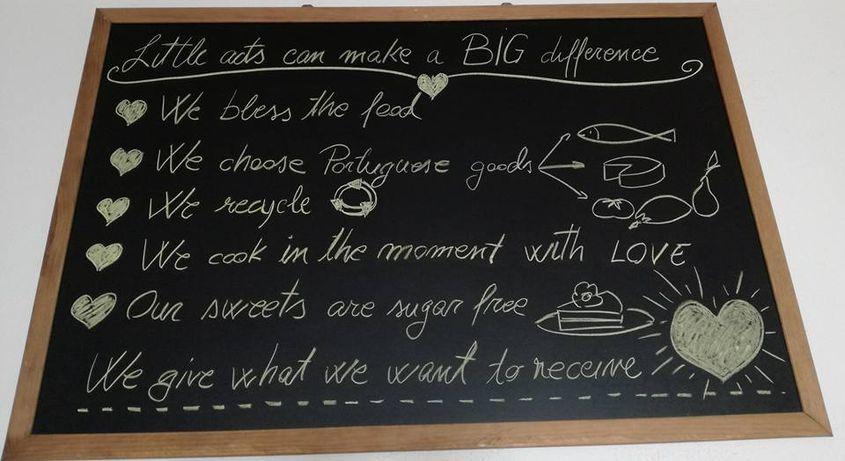 Little acts can make a BIG difference
We bless the food
We choose Portuguese goods
We recycle
We cook in the moment with LOVE
Our sweets are sugar free
We give what we want to receive